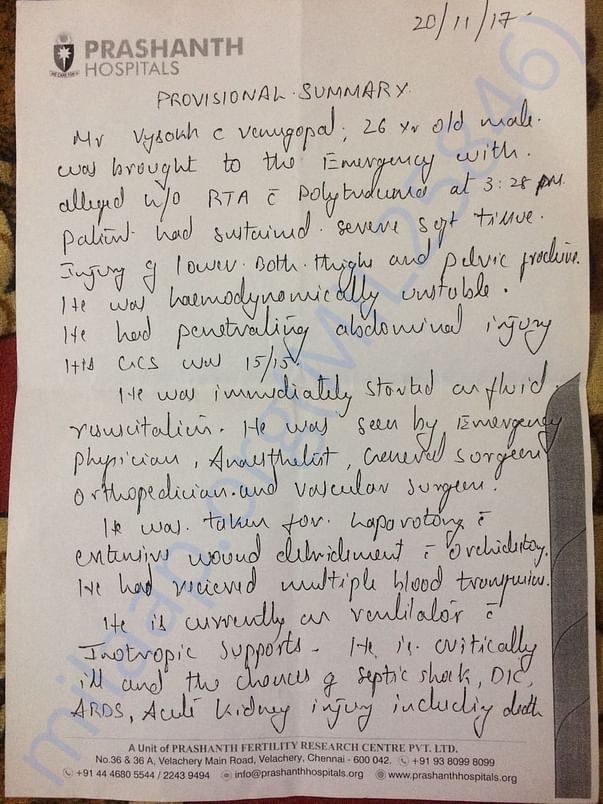 20/11/17
PRASHANTH
HOSPITALS
WE CARE FOR U
PROVISIONAL SUMMARY
Mr Vysakh C Venugopal, 26 yr old male.
was brought to the Emergency with
alleged h/o RTA c̄ Polytrauma at 3:28 pm.
Patient had sustained severe soft tissue
Injury of lower Both thighs and pelvic fracture.
He was haemodynamically unstable.
He had penetrating abdominal injury
His GCS was 15/15.
He was immediately started on fluid
resuscitation. He was seen by Emergency
physician, Anaesthetist, General Surgeon
Orthopedician and Vascular Surgeon.
He was taken for Laparotomy c̄
extensive wound debridement c̄ Orchidectomy.
He had recieved multiple blood transfusion.
He is currently on ventilator c̄
Inotropic supports. He is critically
ill and the chances of septic shock, DIC,
ARDS, Acute kidney injury including death
A Unit of PRASHANTH FERTILITY RESEARCH CENTRE PVT. LTD.
No.36 & 36 A, Velachery Main Road, Velachery, Chennai - 600 042. +91 93 8099 8099
+91 44 4680 5544 / 2243 9494 info@prashanthhospitals.org www.prashanthhospitals.org
milaap.org(MIL_25846)